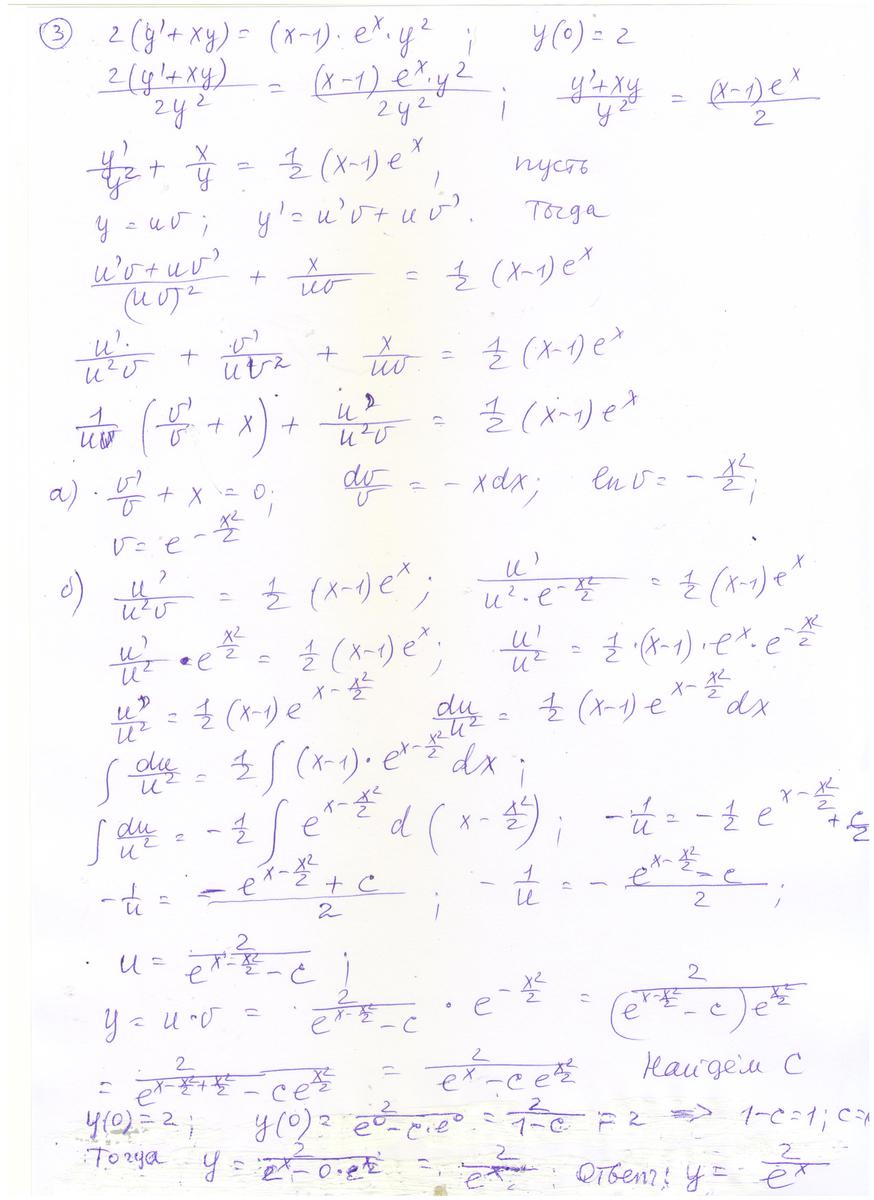 ③ 2(y'+xy) = (x-1)·e^x·y^2 ; y(0)=2
2(y'+xy)/2y^2 = (x-1)e^x·y^2/2y^2 ; y'+xy/y^2 = (x-1)e^x/2
y'/y^2 + x/y = 1/2 (x-1)e^x, пусть
y = uv; y' = u'v + uv'. Тогда
u'v+uv'/(uv)^2 + x/uv = 1/2 (x-1)e^x
u'/u^2v + v'/uv^2 + x/uv = 1/2 (x-1)e^x
1/uv (v'/v + x) + u'/u^2v = 1/2 (x-1)e^x
а) v'/v + x = 0; dv/v = -xdx; ln v = - x^2/2;
v = e^(-x^2/2)
б) u'/u^2v = 1/2 (x-1)e^x; u'/u^2·e^(-x^2/2) = 1/2 (x-1)e^x
u'/u^2 · e^(x^2/2) = 1/2 (x-1)e^x; u'/u^2 = 1/2·(x-1)·e^x·e^(-x^2/2)
u'/u^2 = 1/2 (x-1)e^(x-x^2/2) du/u^2 = 1/2 (x-1)e^(x-x^2/2) dx
∫ du/u^2 = 1/2 ∫ (x-1)·e^(x-x^2/2) dx ;
∫ du/u^2 = - 1/2 ∫ e^(x-x^2/2) d(x - x^2/2); -1/u = - 1/2 e^(x-x^2/2) + c/2
-1/u = -e^(x-x^2/2) + c/2 ; -1/u = - e^(x-x^2/2) - c/2 ;
u = 2/e^(x-x^2/2) - c ;
y = u·v = 2/e^(x-x^2/2) - c · e^(-x^2/2) = 2/(e^(x-x^2/2) - c)e^(x^2/2)
= 2/e^(x-x^2/2+x^2/2) - ce^(x^2/2) = 2/e^x - ce^(x^2/2) Найдём C
y(0)=2; y(0)= 2/e^0-c·e^0 = 2/1-c = 2 => 1-c=1; c=
Тогда y = 2/e^x - 0·e^(x^2/2) = 2/e^x Ответ: y = 2/e^x